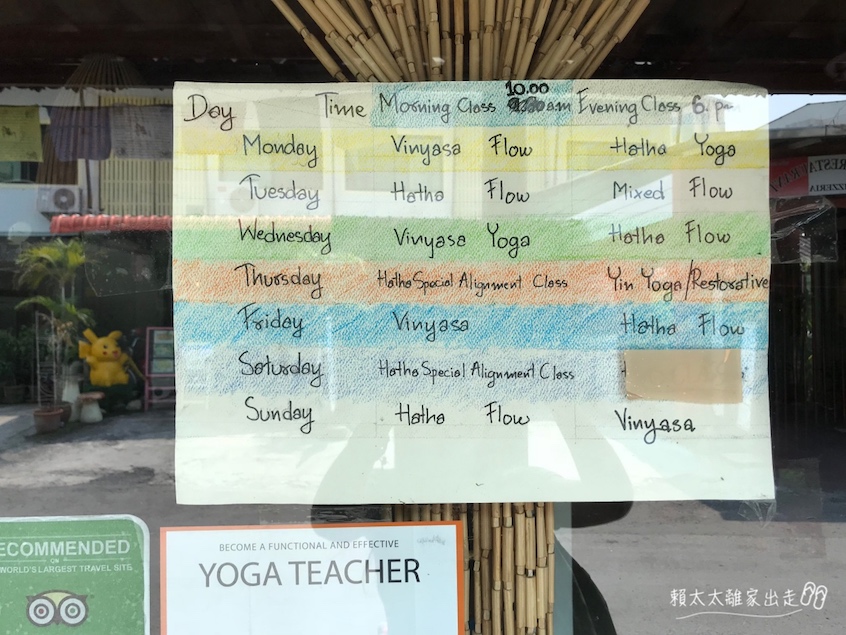 10.00
Day Time Morning Class am Evening Class 6. pm
Monday Vinyasa Flow Hatha Yoga
Tuesday Hatha Flow Mixed Flow
Wednesday Vinyasa Yoga Hatha Flow
Thursday Hatha Special Alignment Class Yin Yoga/Restorative
Friday Vinyasa Hatha Flow
Saturday Hatha Special Alignment Class
Sunday Hatha Flow Vinyasa
ECOMMENDED
ON
WORLD'S LARGEST TRAVEL SITE
BECOME A FUNCTIONAL AND EFFECTIVE
YOGA TEACHER
賴太太離家出走